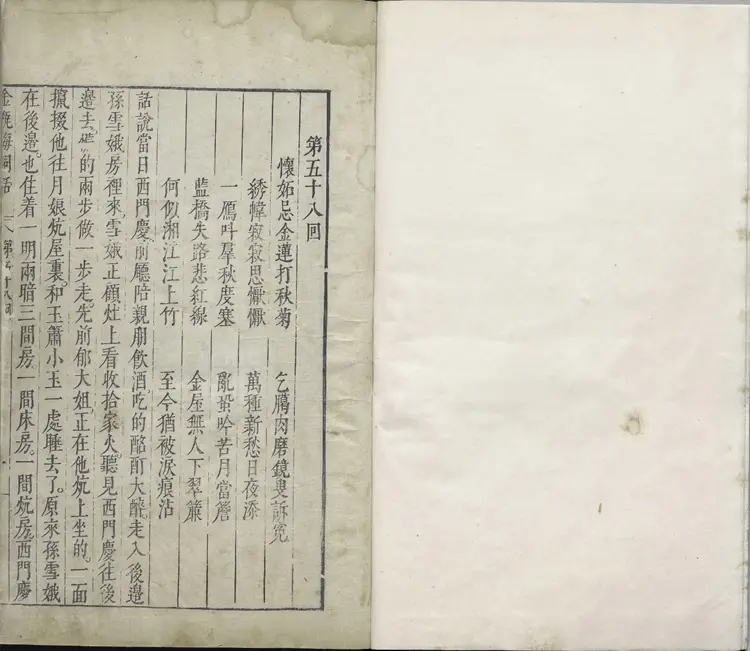 第五十八回
懷妬忌金蓮打秋菊 乞臘肉磨鏡叟訴冤
綉幃寂寂思懨懨 萬種新愁日夜添
一鴈呌羣秋度塞 亂蛩吟苦月當簷
藍橋失路悲紅線 金屋無人下翠簾
何似湘江江上竹 至今猶被淚痕沾
話說當日西門慶前廳陪親朋飲酒吃的酩酊大醉走入後邊
孫雪娥房裡來雪娥正顧灶上看收拾家火聽見西門慶往後
邊去的兩步做一步走先前郁大姐正在他炕上坐的一面
攛掇他往月娘炕屋裏和玉簫小玉一處睡去了原來孫雪娥
在後邊也住着一明兩暗三間房一間床房一間炕房西門慶
金瓶梅詞話 第五十八回